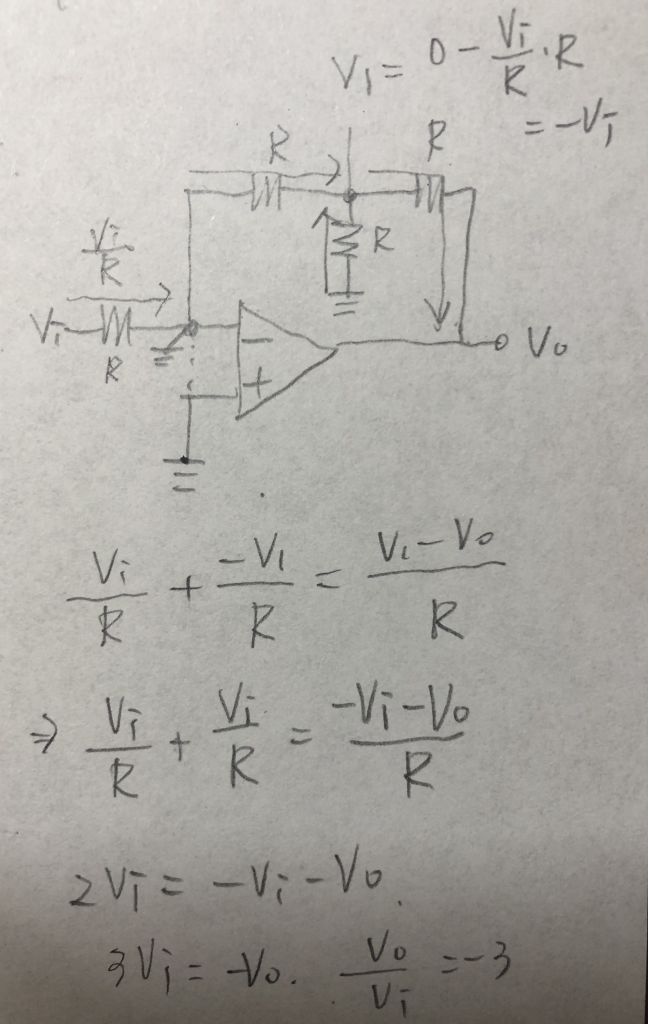 V₁ = 0 - Vi/R · R
= -Vi
R R
Vi/R
R
Vi R
- Vo
+
Vi/R + -V₁/R = V₁-Vo/R
⇒ Vi/R + Vi/R = -Vi-Vo/R
2Vi = -Vi-Vo.
3Vi = -Vo. Vo/Vi = -3